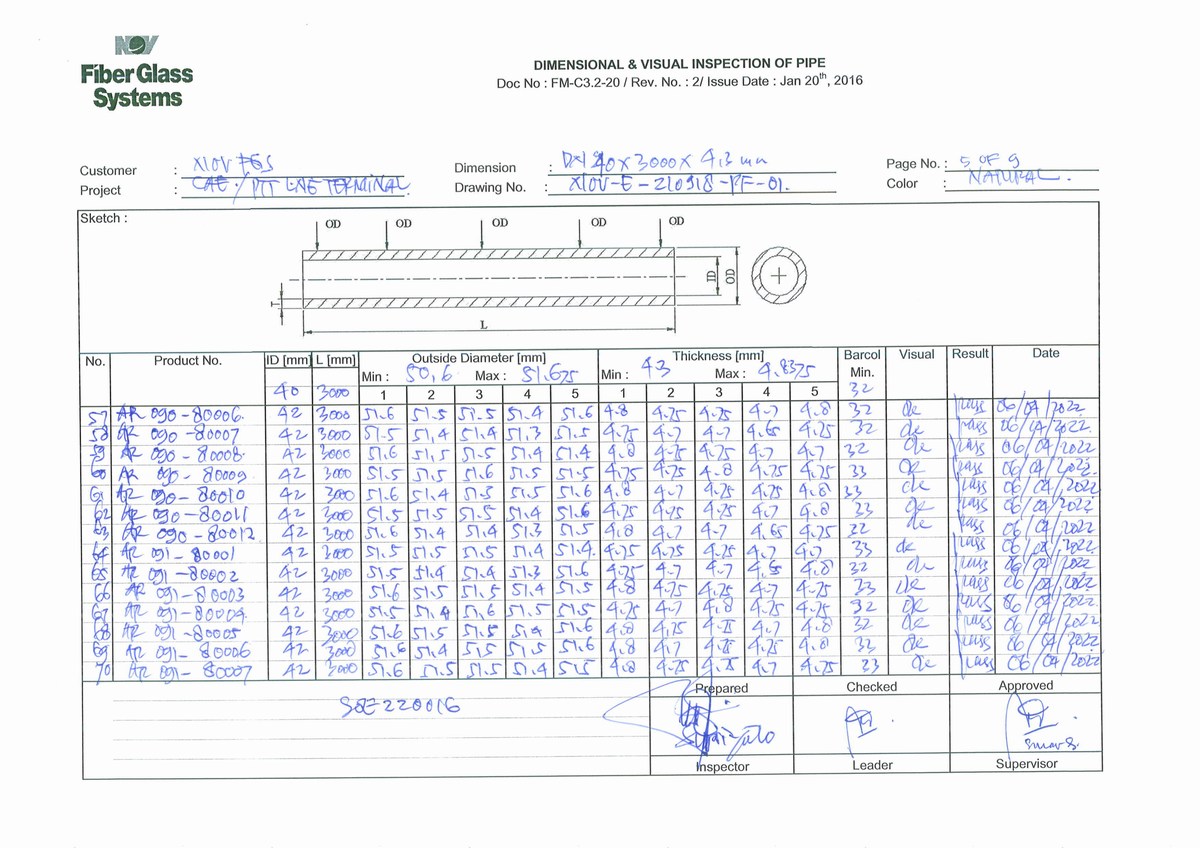 NOV
Fiber Glass
Systems
DIMENSIONAL & VISUAL INSPECTION OF PIPE
Doc No : FM-C3.2-20 / Rev. No. : 2/ Issue Date : Jan 20th, 2016
Customer : NOV FGS Dimension : 40 x 3000 x 4.3 mm Page No. : 5 OF 9
Project : CAE / PTT LNG TERMINAL Drawing No. : NOV-E-210918-PF-01. Color : NATURAL.
Sketch :
OD OD OD OD OD
ID OD
T
L
No. Product No. ID [mm] L [mm] Outside Diameter [mm] Thickness [mm] Barcol Visual Result Date
Min : 50,6 Max : 51.675 Min : 43 Max : 4.8375 Min.
40 3000 1 2 3 4 5 1 2 3 4 5 32
57 AR 090-80006 42 3000 51.6 51.5 51.5 51.4 51.6 4.8 4.75 4.75 4.7 4.8 32 ok pass 06/04/2022
58 AR 090-80007 42 3000 51.5 51,4 51.4 51.3 51.5 4.75 4.7 4.7 4.65 4.75 32 ok pass 06/04/2022
59 AR 090-80008 42 3000 51.6 51.5 51.5 51.4 51.4 4.8 4.75 4.75 4.7 4.7 32 ok pass 06/04/2022
60 AR 090-80009 42 3000 51.5 51.5 51.6 51.5 51.5 4.75 4.75 4.8 4.75 4.75 33 ok pass 06/04/2022
61 AR 090-80010 42 3000 51.6 51.4 51.5 51.5 51.6 4.8 4.7 4.75 4.75 4.8 33 ok pass 06/04/2022
62 AR 090-80011 42 3000 51.5 51.5 51.5 51.4 51.6 4.75 4.75 4.75 4.7 4.8 33 ok pass 06/04/2022
63 AR 090-80012 42 3000 51.6 51.4 51.4 51.3 51.5 4.8 4.7 4.7 4.65 4.75 32 ok pass 06/04/2022
64 AR 091-80001 42 3000 51.5 51.5 51.5 51.4 51.4 4.75 4.75 4.75 4.7 4.7 33 ok pass 06/04/2022
65 AR 091-80002 42 3000 51.5 51.4 51.4 51.3 51.6 4.75 4.7 4.7 4.65 4.8 32 ok pass 06/04/2022
66 AR 091-80003 42 3000 51.6 51.5 51.5 51.4 51.5 4.8 4.75 4.75 4.7 4.75 33 ok pass 06/04/2022
67 AR 091-80004 42 3000 51.5 51.4 51,6 51.5 51.5 4.75 4.7 4.8 4.75 4.75 32 ok pass 06/04/2022
68 AR 091-80005 42 3000 51.6 51.5 51.5 51.4 51.6 4.8 4.75 4.75 4.7 4.8 32 ok pass 06/04/2022
69 AR 091-80006 42 3000 51.6 51.4 51.5 51.5 51.6 4.8 4.7 4.75 4.75 4.8 33 ok pass 06/04/2022
70 AR 091-80007 42 3000 51.6 51.5 51.5 51.4 51.5 4.8 4.75 4.75 4.7 4.75 33 ok pass 06/04/2022
SOE220016
Prepared Checked Approved
Inspector Leader Supervisor